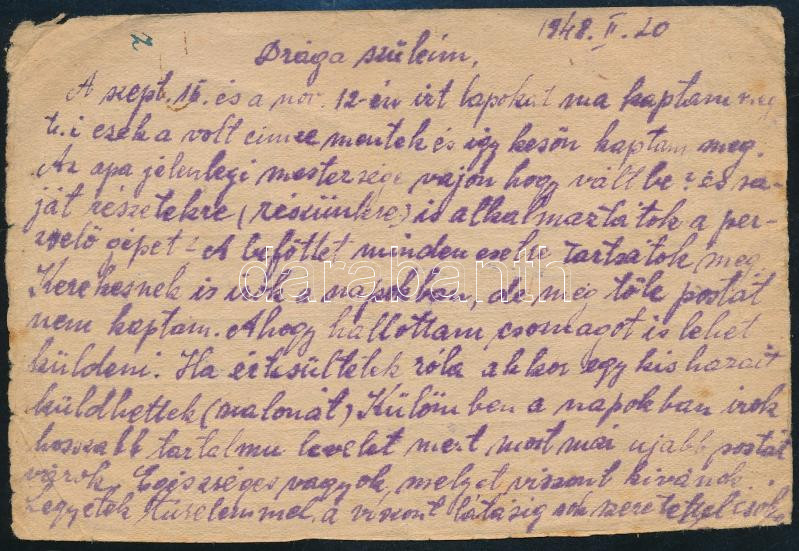 1948. II. 20
Drága szüleim,
A szept. 15. és a nov. 12-én irt lapokat ma kaptam meg
t.i ezek a volt cimre mentek és igy késön kaptam meg.
Az apa jelenlegi mestersége vajon hogy vált be? és sa-
ját részetekre (részünkre) is alkalmaztátok a per-
zselö gépet? A befőttet minden esetre tartsátok meg
Kerekesnek is irok a napokban, de még töle postát
nem kaptam. Ahogy hallottam csomagot is lehet
küldeni. Ha értesültetek róla akkor egy kis hazait
küldhettek (szalonát) Külömben a napokban irok
hosszabb tartalmu levelet mert most már ujabb postát
várok. Egészséges vagyok, melyet viszont kivánok.
Legyetek türelemmel a viszont látásig sok szeretettel csókol
darabanth